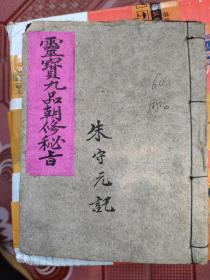 靈寶九品朝修秘旨
朱守元記